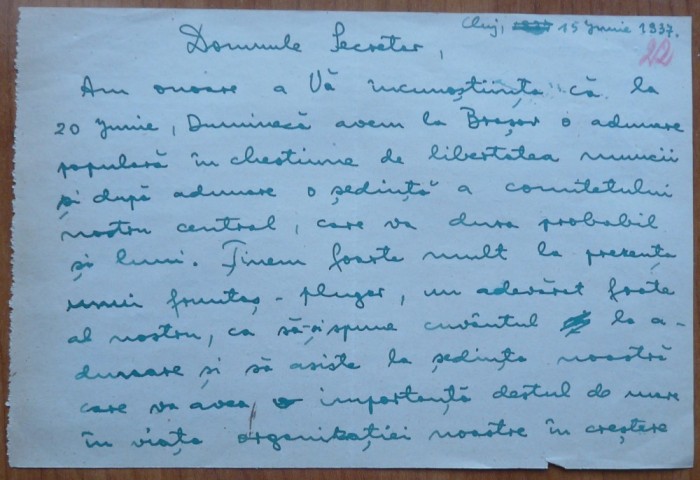 Cluj, 15 Junie 1937.
22
Domnule Secretar,
Am onoare a Vă incunoștiința că la
20 Junie, Duminecă avem la Brașov o adunare
populară în chestiune de libertatea muncii
și după adunare o ședință a comitetului
nostru central, care va dura probabil
și luni. Ținem foarte mult la prezența
unui fruntaș-plugar, un adevărat frate
al nostru, ca să-și spune cuvântul la a-
dunare și să asiste la ședința noastră
care va avea o importanță destul de mare
în viața organizației noastre în creștere